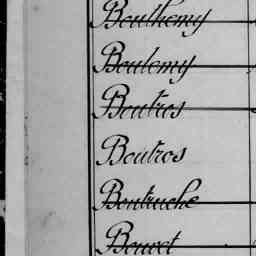 Bouthemy
Boutemy
Boutros
Boutros
Boutruche
Bouvet